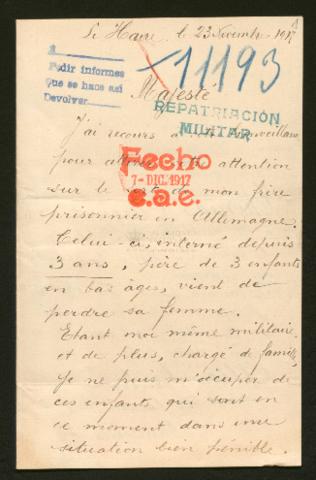 Le Havre, le 23 Novembre 1917
A
Pedir informes
Que se haga así
Devolver
11193
Majesté
REPATRIACIÓN
MILITAR
J'ai recours à bienveillance
pour attirer votre attention
Fecho
7-DIC.1917
sur le sort de mon frère
prisonnier en Allemagne.
Celui-ci, interné depuis
3 ans, père de 3 enfants
en bas âges, vient de
perdre sa femme.
Etant moi même militaire
et de plus, chargé de famille,
je ne puis m'occuper de
ces enfants qui sont en
ce moment dans une
situation bien pénible.